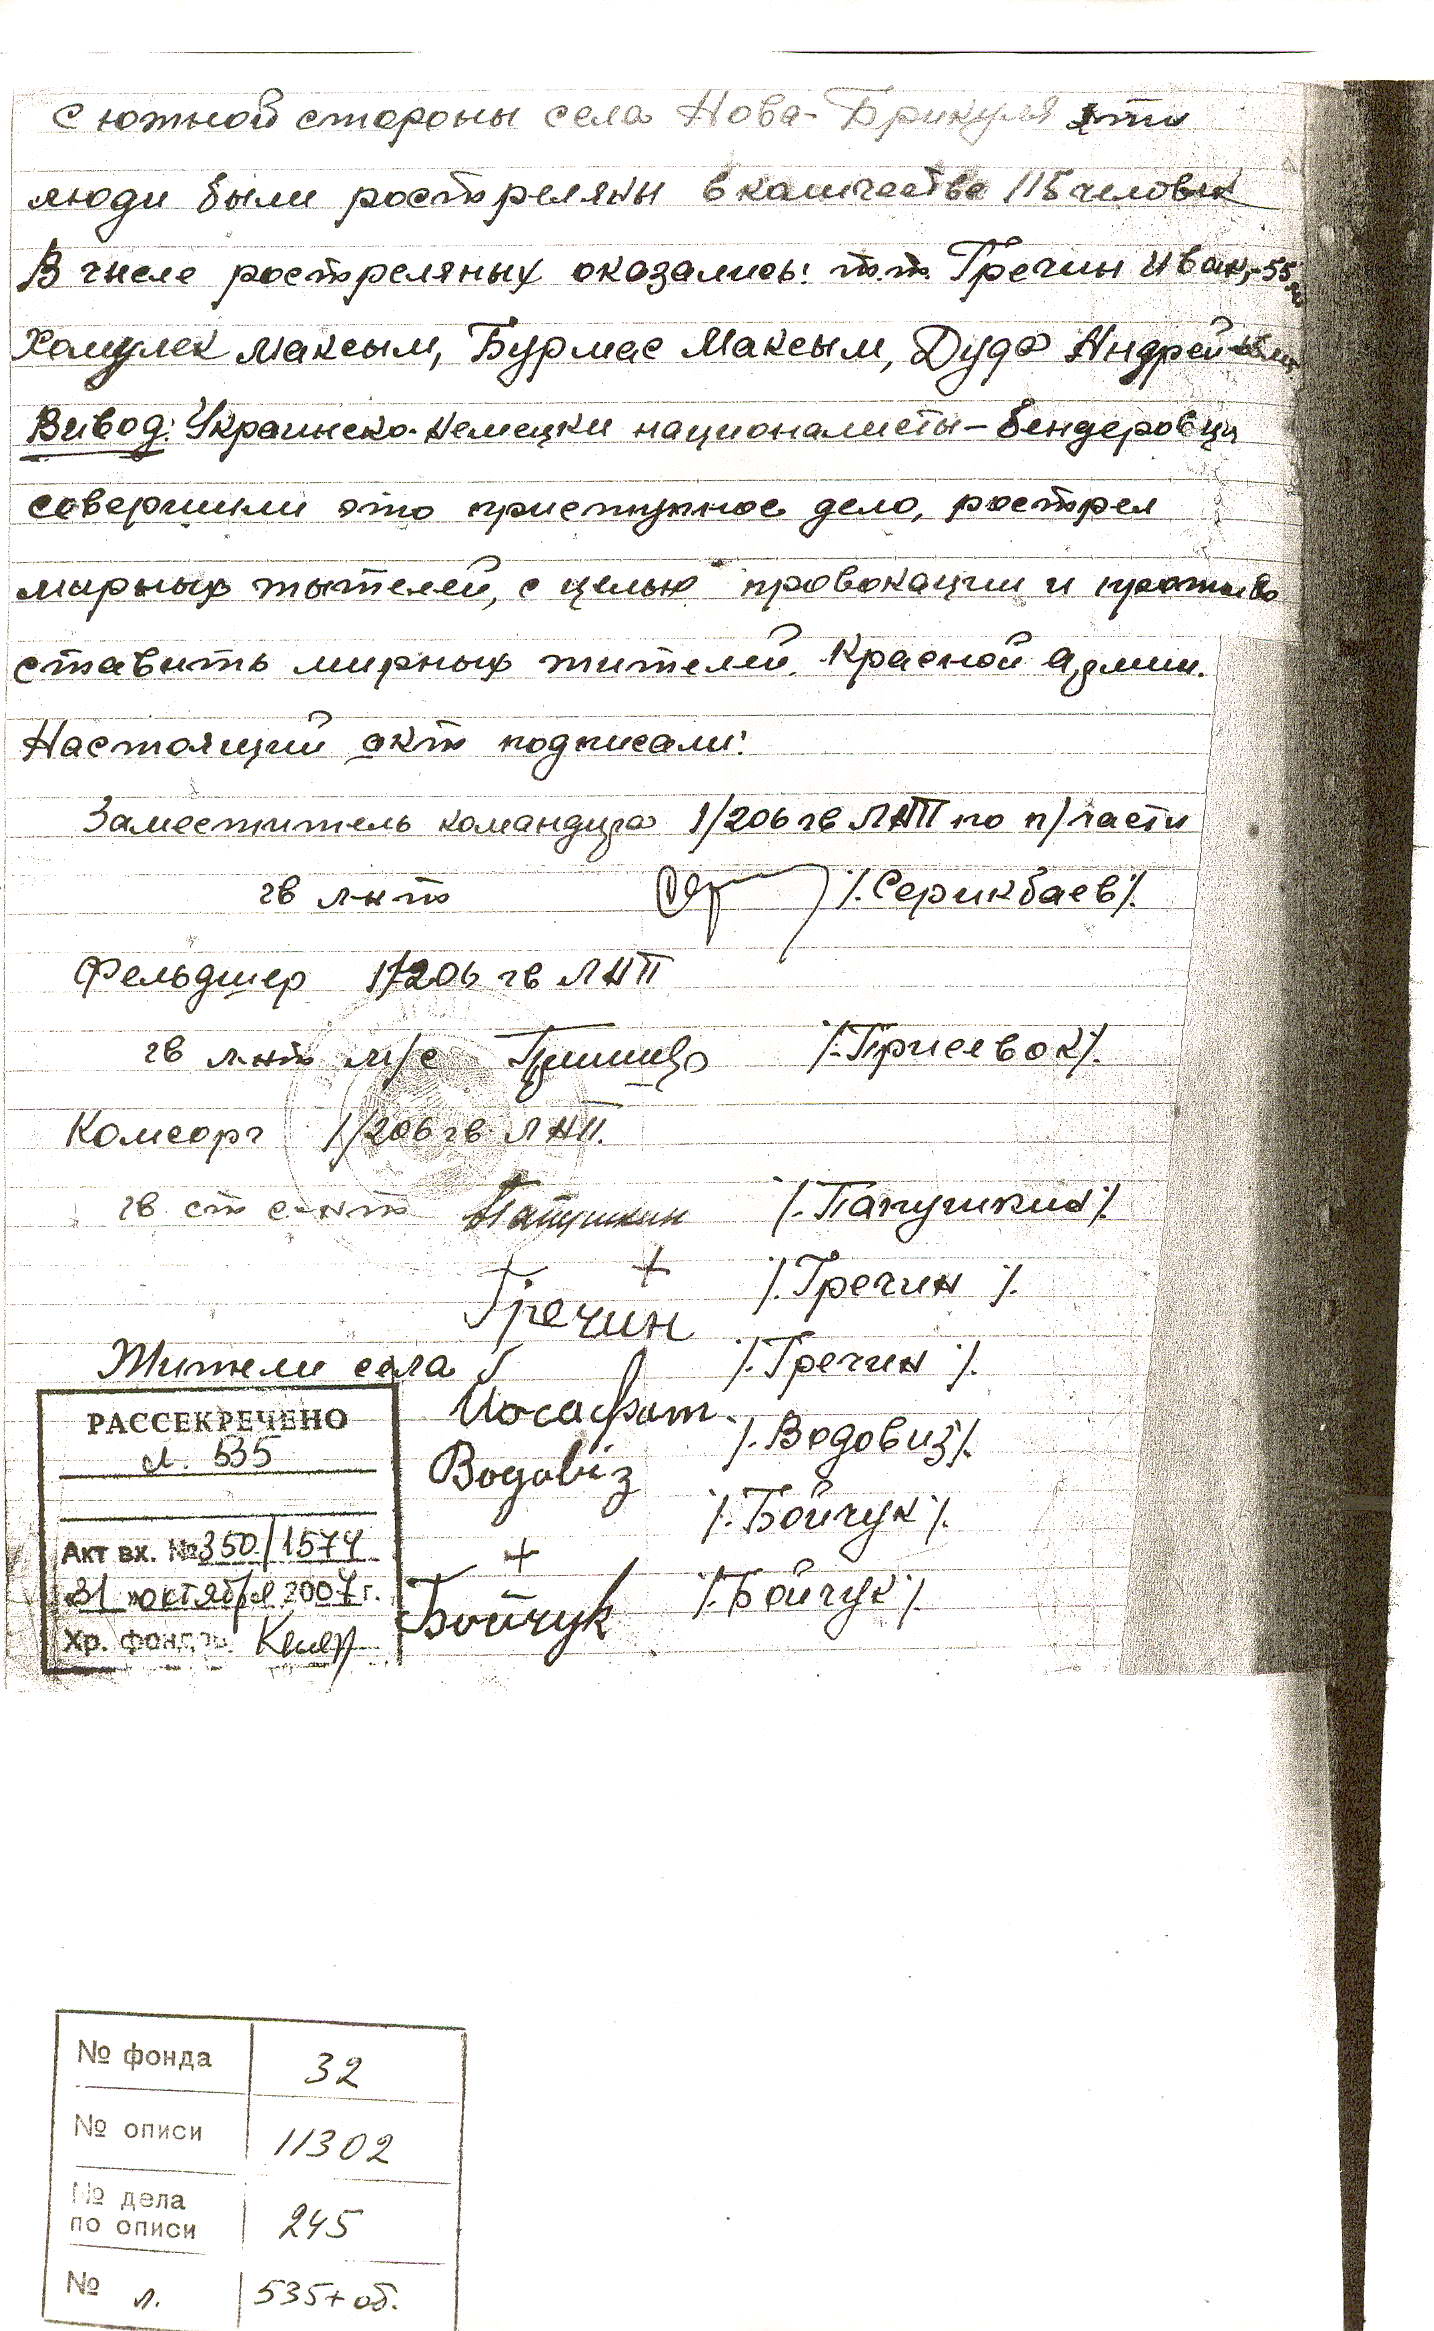 с южной стороны села Нова-Брикуля эти
люди были ростреляны в количестве 115 человек
В числе рострелянных оказались: т.т. Гречин Иван, -55
Хомулек Максым, Бурмас Максым, Дуда Андрей
Вивод: Украинско-немецки националисты-бендеровци
совершили это приступное дело, рострел
мирных жытелей, с целью провокации и противо
ставить мирных жителей Красной Армии.
Настоящий акт подписали:
Заместитель командира 1/206 гв ЛАП по п/части
гв л-нт /.Серикбаев/.
Фельдшер 1/206 гв ЛАП
гв л-нт м/с /.Присевок/.
Комсорг 1/206 гв ЛАП.
гв ст с-нт Папушкин /.Папушкин/.
+ /.Гречин/.
Гречин
Жители села /.Гречин/.
Йосафат
/.Водовиз/.
Водовіз
/.Бойчук/.
+
Бойчук /.Бойчук/.
РАССЕКРЕЧЕНО
л. 535
Акт вх. №350/1574
«31» октября 2007 г.
Хр. фондов
№ фонда 32
№ описи 11302
№ дела по описи 245
№ л. 535+об.